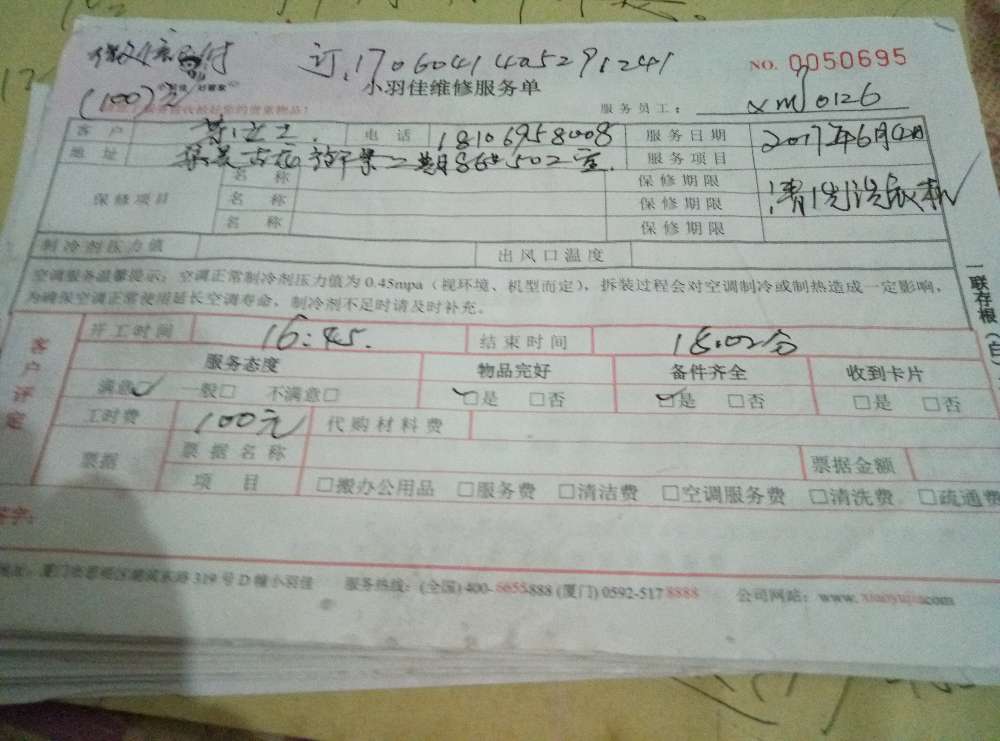 微信支付 订.17060414052991241 NO. 0050695
(100)元 小羽佳维修服务单 服务员工: xm0126
客户 电话 18106958008 服务日期 2017年6月
地址 二期 502室. 服务项目 清洗洗衣机
保修项目 名称 保修期限
名称 保修期限
名称 保修期限
制冷剂压力值 出风口温度
空调服务温馨提示:空调正常制冷剂压力值为0.45mpa(视环境、机型而定),拆装过程会对空调制冷或制热造成一定影响,
为确保空调正常使用延长空调寿命,制冷剂不足时请及时补充。
一联存根(白
客户评定
开工时间 16:45. 结束时间 18:02分
服务态度 物品完好 备件齐全 收到卡片
满意 一般□ 不满意□ □是 □否 □是 □否 □是 □否
工时费 100元 代购材料费
票据 票据名称 票据金额
项目 □搬办公用品 □服务费 □清洁费 □空调服务费 □清洗费 □疏通费
签字:
地址:厦门市思明区湖滨东路319号D幢小羽佳 服务热线:(全国)400-6655888 (厦门)0592-5178888 公司网站:www.xiaoyujia.com